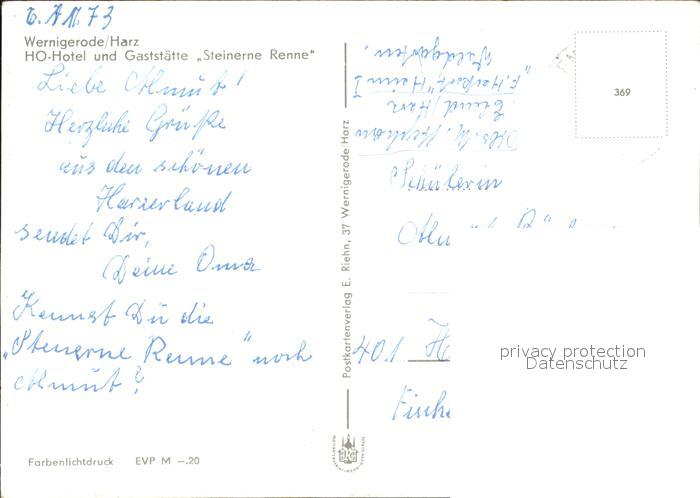 Wernigerode/Harz
HO-Hotel und Gaststätte „Steinerne Renne"
Liebe Almut!
Herzliche Grüße
aus den schönen
Harzerland
sendet Dir,
Deine Oma
Kennst Du die
„Steinerne Renne" noch
Almut?
Farbenlichtdruck EVP M –.20
Postkartenverlag E. Riehn, 37 Wernigerode/Harz
369
Elend/Harz
Heim I
Waldgarten.
Schülerin
401 H
Fische
privacy protection
Datenschutz